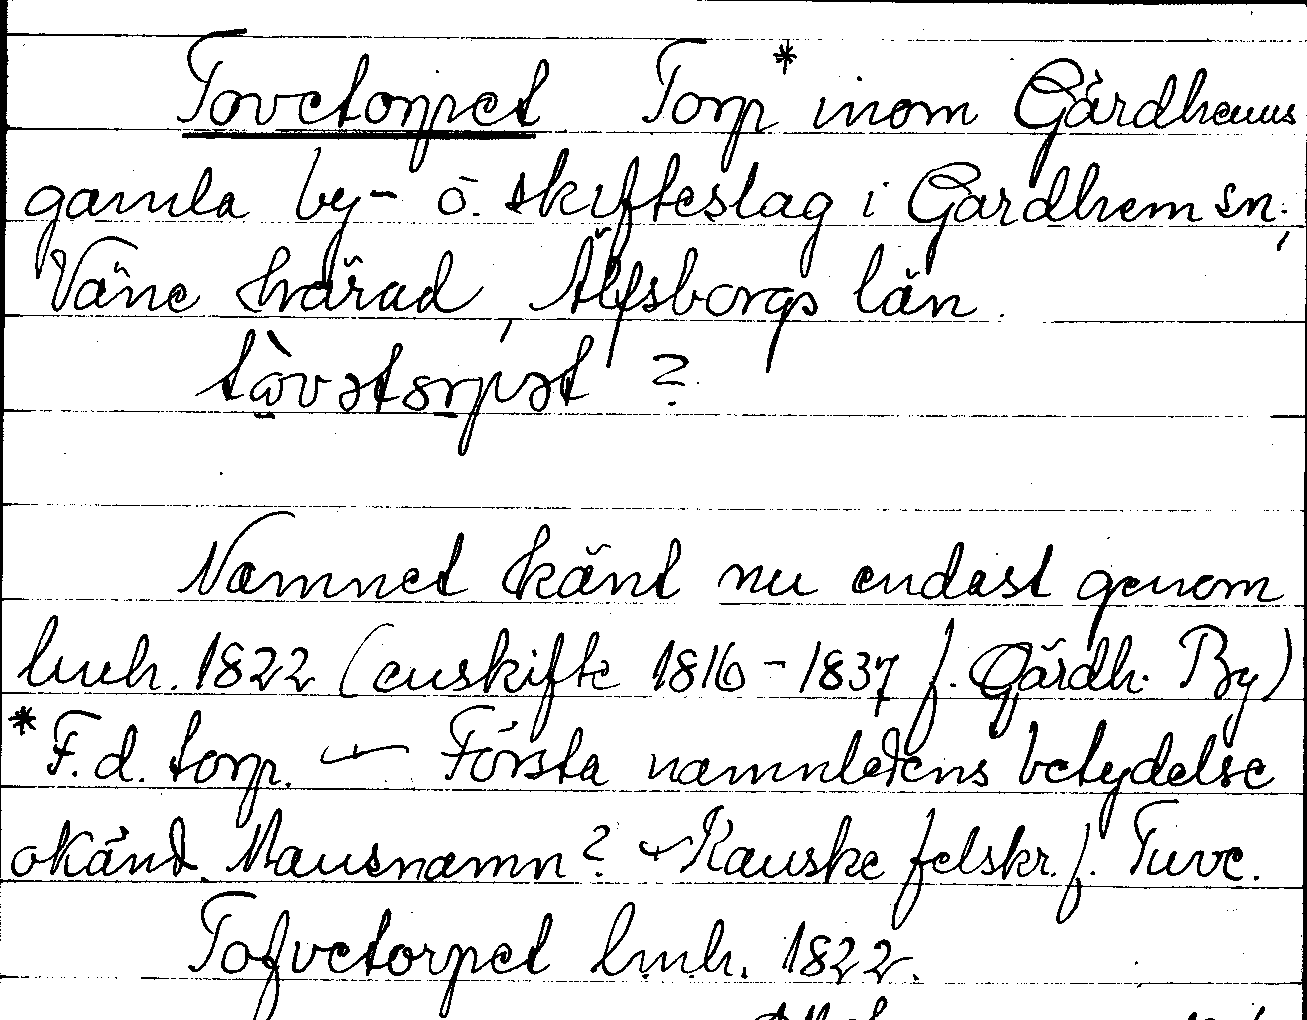 Tovetorpet Torp* inom Gärdhems
gamla by- o. skifteslag i Gärdhem sn;
Väne härad, Älfsborgs län.
tòvətorpət ?
Namnet känt nu endast genom
lmh. 1822 (enskifte 1816-1837 f. Gärdh. By)
*F.d. torp. — Första namnledens betydelse
okänd. Mansnamn? — Kanske felskr. f. Tuve.
Tofvetorpet lmh. 1822.